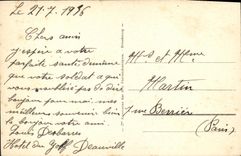 Le 21-7. 1936
Chers amis
j'espère a votre
parfaite santé
que votre soldat a qui
vous
bonjour pour moi. mes
meilleurs souvenir bien
le bonjour votre ami
Louis Desbarres
Hotel du Golf Deauville
Mr et Mme
Martin
7 rue Berrier
(Paris)